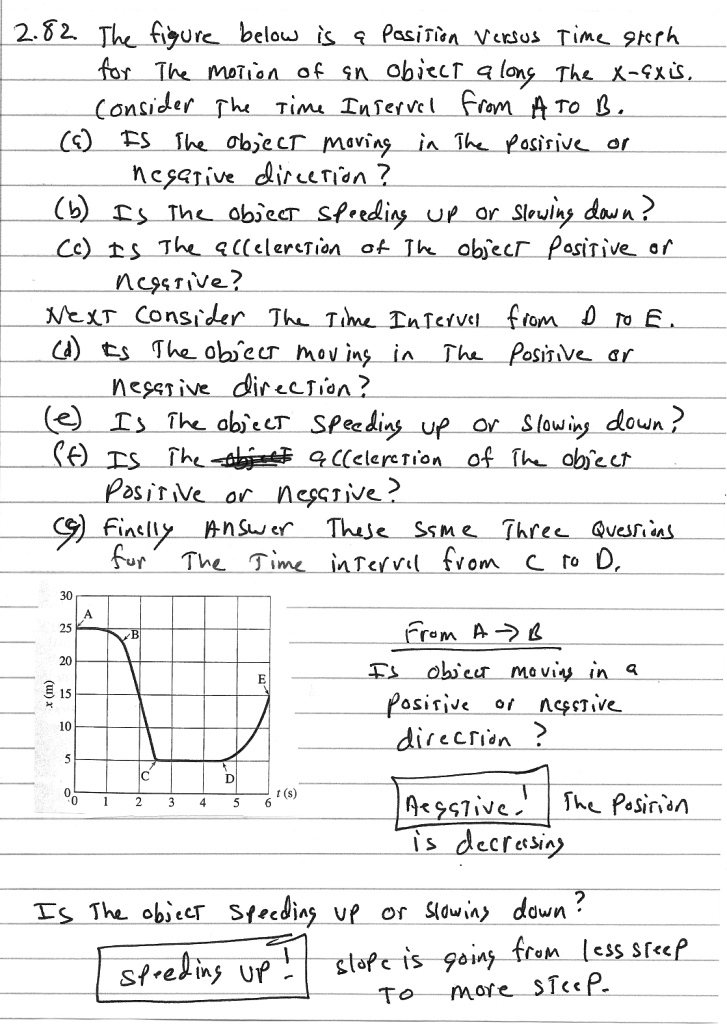 2.82 The figure below is a Position Versus Time graph
for The motion of an object along The x-axis.
Consider The Time Interval from A To B.
(a) Is The object moving in The positive or
negative direction?
(b) Is The object speeding up or slowing down?
(c) Is The acceleration of The object Positive or
negative?
Next Consider The Time Interval from D To E.
(d) Is The object moving in The Positive or
negative direction?
(e) Is The object speeding up or slowing down?
(f) Is The object acceleration of The object
Positive or negative?
(g) Finally Answer These Same Three Questions
for The Time interval from C To D.
30
25
20
15
10
5
0
x (m)
A
B
C
D
E
0 1 2 3 4 5 6
t (s)
From A → B
Is object moving in a
Positive or negative
direction?
Negative! The Position
is decreasing
Is The object speeding up or slowing down?
Speeding up! slope is going from less steep
To more steep.